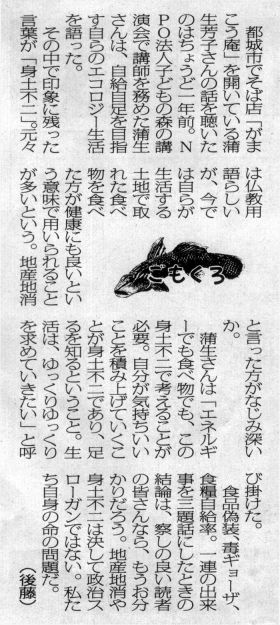 都城市でそば店「がま
こう庵」を開いている蒲
生芳子さんの話を聴いた
のはちょうど一年前。N
PO法人子どもの森の講
演会で講師を務めた蒲生
さんは、自給自足を目指
す自らのエコロジー生活
を語った。
その中で印象に残った
言葉が「身土不二」。元々
は仏教用
語らしい
が、今で
は自らが
生活する
土地で取
れた食べ
物を食べ
た方が健康にも良いとい
う意味で用いられること
が多いという。地産地消
ごもくろ
と言った方がなじみ深い
か。
蒲生さんは「エネルギ
ーでも食べ物でも、この
身土不二で考えることが
必要。自分が気持ちいい
ことを積み上げていくこ
とが身土不二であり、足
るを知るということ。生
活は、ゆっくりゆっくり
を求めていきたい」と呼
び掛けた。
食品偽装、毒ギョーザ、
食糧自給率。一連の出来
事を三題話にしたときの
結論は、察しの良い読者
の皆さんなら、もうお分
かりだろう。地産地消や
身土不二は決して政治ス
ローガンではない。私た
ち自身の命の問題だ。
（後藤）